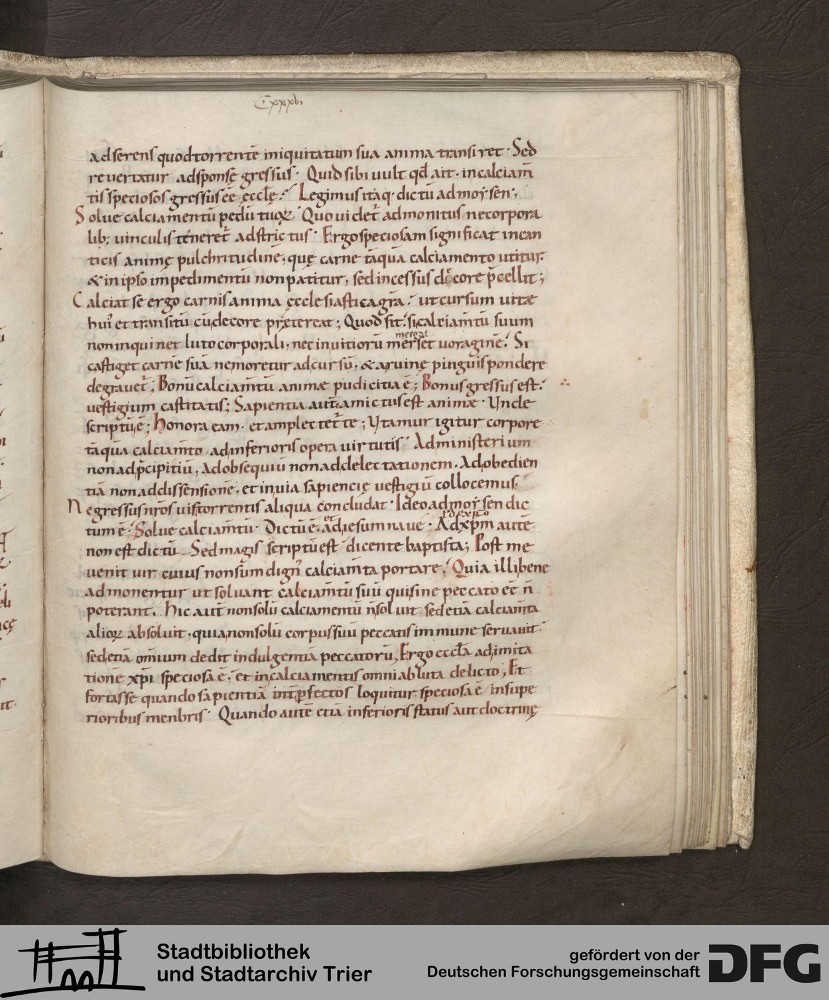 Cxxxvi
adserens quod torrentē iniquitatum sua anima transiret. Sed
revertatur adsponsę gressus. Quid sibi uult qd̄ ait. in calciam̄
tis speciosos gressus eē ęcclę. Legimus itaq; dictū ad moysen;
Solue calciamentū pedū tuoꝝ. Quo videt̄ admonitus ne corpora
lib; uinculis teneret̄ adstrictus. Ergo speciosam significat in can
ticis animę pulchritudinē, quę carne tāqua calciamento utitur.
& in ipso impedimentū non patitur, sed incessus decore p̄cellit;
Calciat se ergo carnis anima ecclesiastica gr̄a. ut cursum uitæ
hui' et transitū cū decore prætereat; Quod sit. si calciam̄tū suum
non inquinet luto corporali, nec inuitiorū merset uoragine. Si
mergat
castiget carnē suā ne moretur ad cursū, & aruinę pinguis pondere
degrauet̄. Bonū calciam̄tū animæ pudicitia ē; Bonus gressus est.
uestigium castitatis; Sapientia aut̄ amictus est animæ. Unde
scriptū ē; honora eam. et amplectet̄ te; Utamur igitur corpore
tāqua calciam̄to. ad inferioris opera uirtutis. Ad ministerium
non ad p̄cipitiū, Ad obsequiū non ad delectationem. Ad obedien
tiā non ad dissensionē. et in uia sapiencię uestigiū collocemus.
Ne gressus nr̄os uis torrentis aliqua concludat. Ideo ad moysen dic
tum ē. Solue calciam̄tū. Dictū ē et ad iesum naue. Ad xp̄m aute
non est dictū. Sed magis scriptū est dicente baptista; Post me
uenit uir cuius non sum dign' calciam̄ta portare. Quia illi bene
admonentur ut soluant calciam̄tū suū qui sine peccato eē n̄
poterant. hic aut̄ non solū calciamentū n̄ soluit sed etiā calciam̄ta
alioꝝ absoluit. quia non solū corpus suū peccatis immune seruauit.
sed etiā omnium dedit indulgentiā peccatorū, Ergo eccl̄a ad imita
tionē xp̄i speciosa ē. et in calciamentis omni abluta delicto; Et
fortasse quando sapientia int̄ p̄fectos loquitur speciosa ē in supe
rioribus menbris. Quando autē etiā inferioris status aut doctrinę
Stadtbibliothek
und Stadtarchiv Trier
gefördert von der
Deutschen Forschungsgemeinschaft
DFG